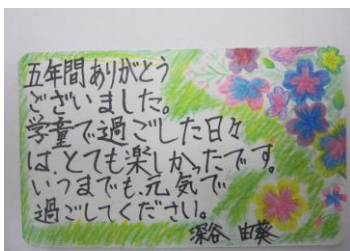 五年間ありがとう
ございました。
学童で過ごした日々
は、とても楽しかったです。
いつまでも、元気で
過ごしてください。
深谷 由葵